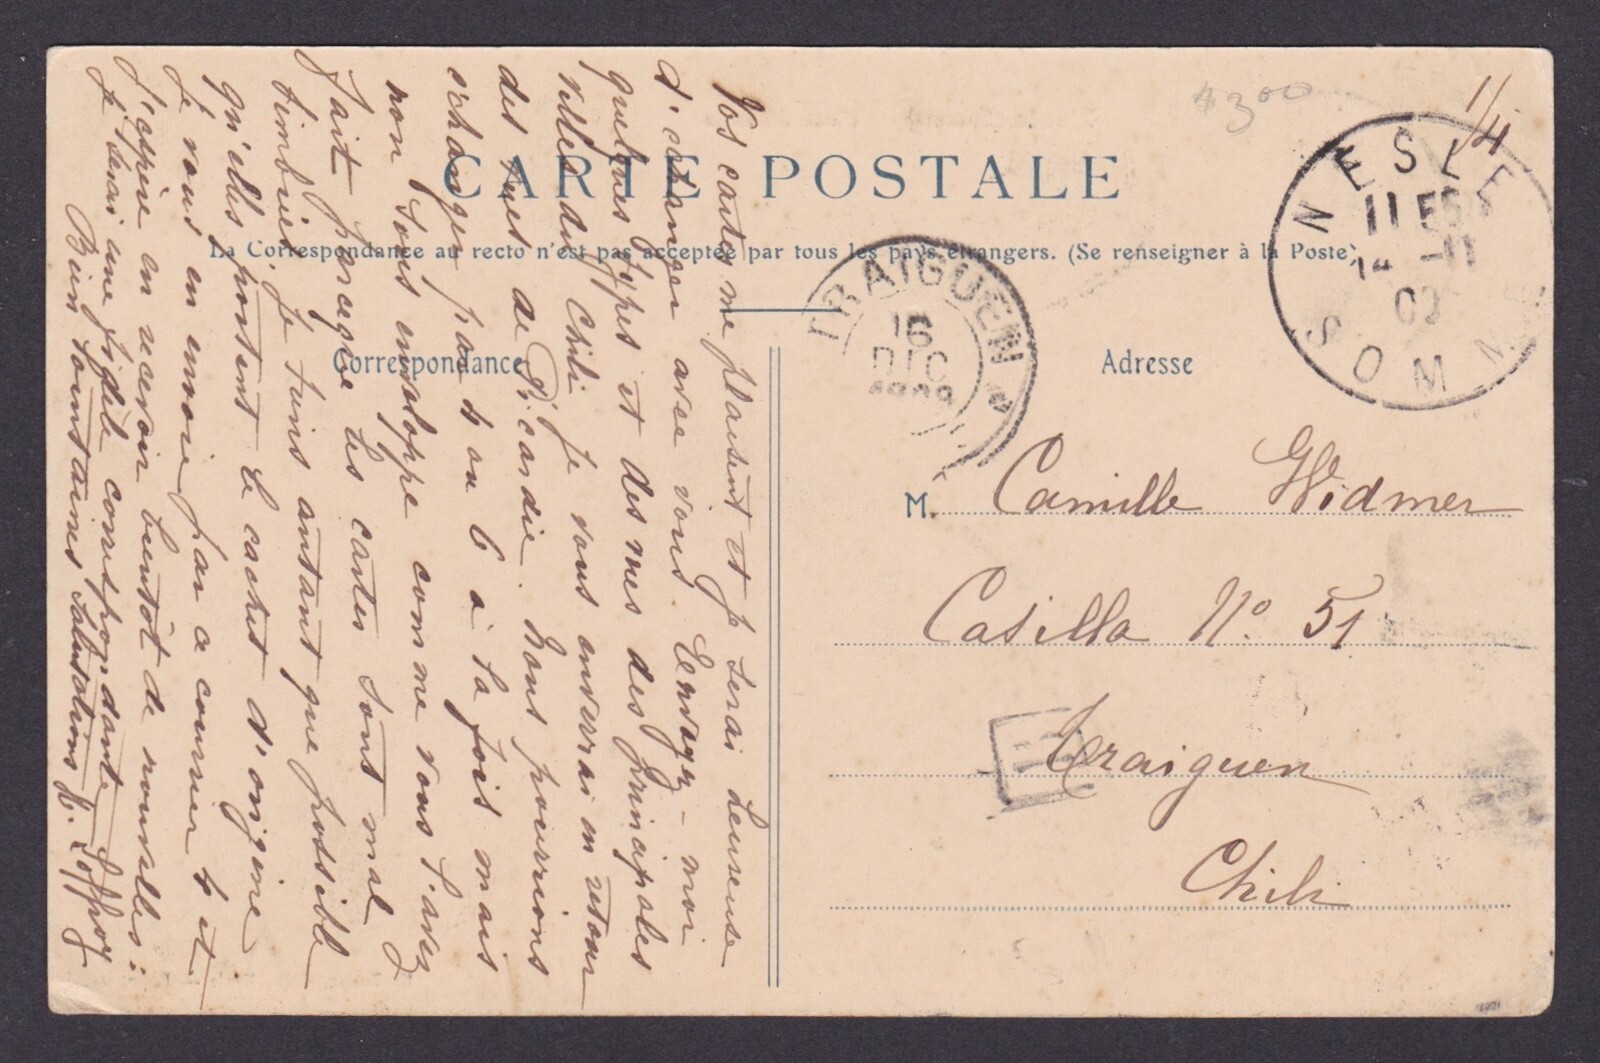 $3.00
1/4
CARTE POSTALE
La Correspondance au recto n'est pas acceptée par tous les pays étrangers. (Se renseigner à la Poste)
NESLE
SOMME
11
14 -11
TRAIGUEN
16
DIC
1909
Correspondance
Adresse
M. Camille Widmer
Casilla No. 51
Traiguen
Chili
Vos cartes me plaisent et je serai heureuse
d'échanger avec vous. Envoyez-moi
quelques types et des vues des principales
villes du Chili je vous enverrai en retour
des vues de Picardie. Nous pourrions
échanger par 4 ou 6 à la fois mais
non sous enveloppe comme vous l'avez
fait parceque les cartes sont mal
timbrées. Je tiens autant que possible
qu'elles portent le cachet d'origine
Je vous en envoie par ce courrier 4 et
j'espère en recevoir bientôt de nouvelles:
Je serai une fidèle correspondante
Bien lointaines salutations